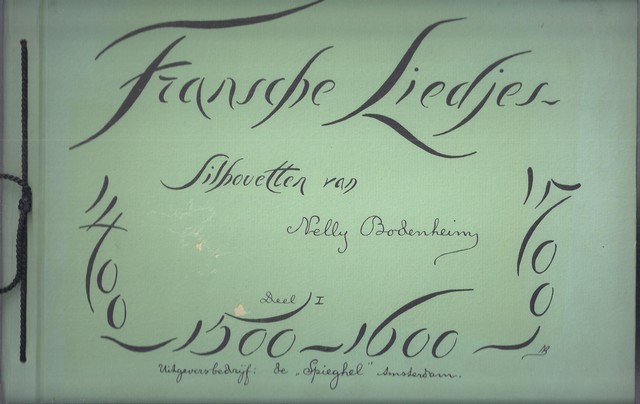 Fransche Liedjes
Silhouetten van
Nelly Bodenheim
1400
1700
Deel I
1500 1600
Uitgeversbedrijf: de „Spieghel" Amsterdam.